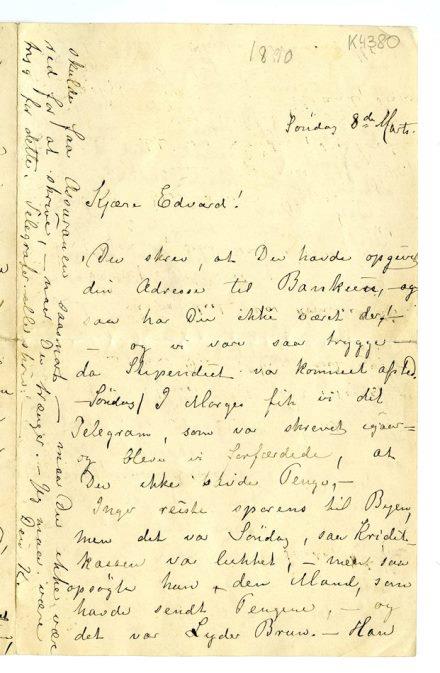 1890
K4380
Søndag 8de Marts.
Kjære Edvard!
Du skrev, at Du havde opgivet
din Adresse til Banken, – og
saa har Du ikke været der! –
– og vi vare saa trygge –
da Stipendiet var kommet afsted.
Søndag / I Morges fik vi dit
Telegram, som var skrevet igaar –
og bleve vi forfærdede, at
Du ikke havde Penge, –
Inger reiste sporens til Byen,
men det var Søndag, saa Kredit-
kassen var lukket, – men saa
opsøgte hun den Mand, som
havde sendt Pengene, – og
det var Lyder Brun. – Han
skulde faa
ræd for at skrive, – naar Du trænger. – Jeg maa være
tryg for dette. Telegrafer
Din